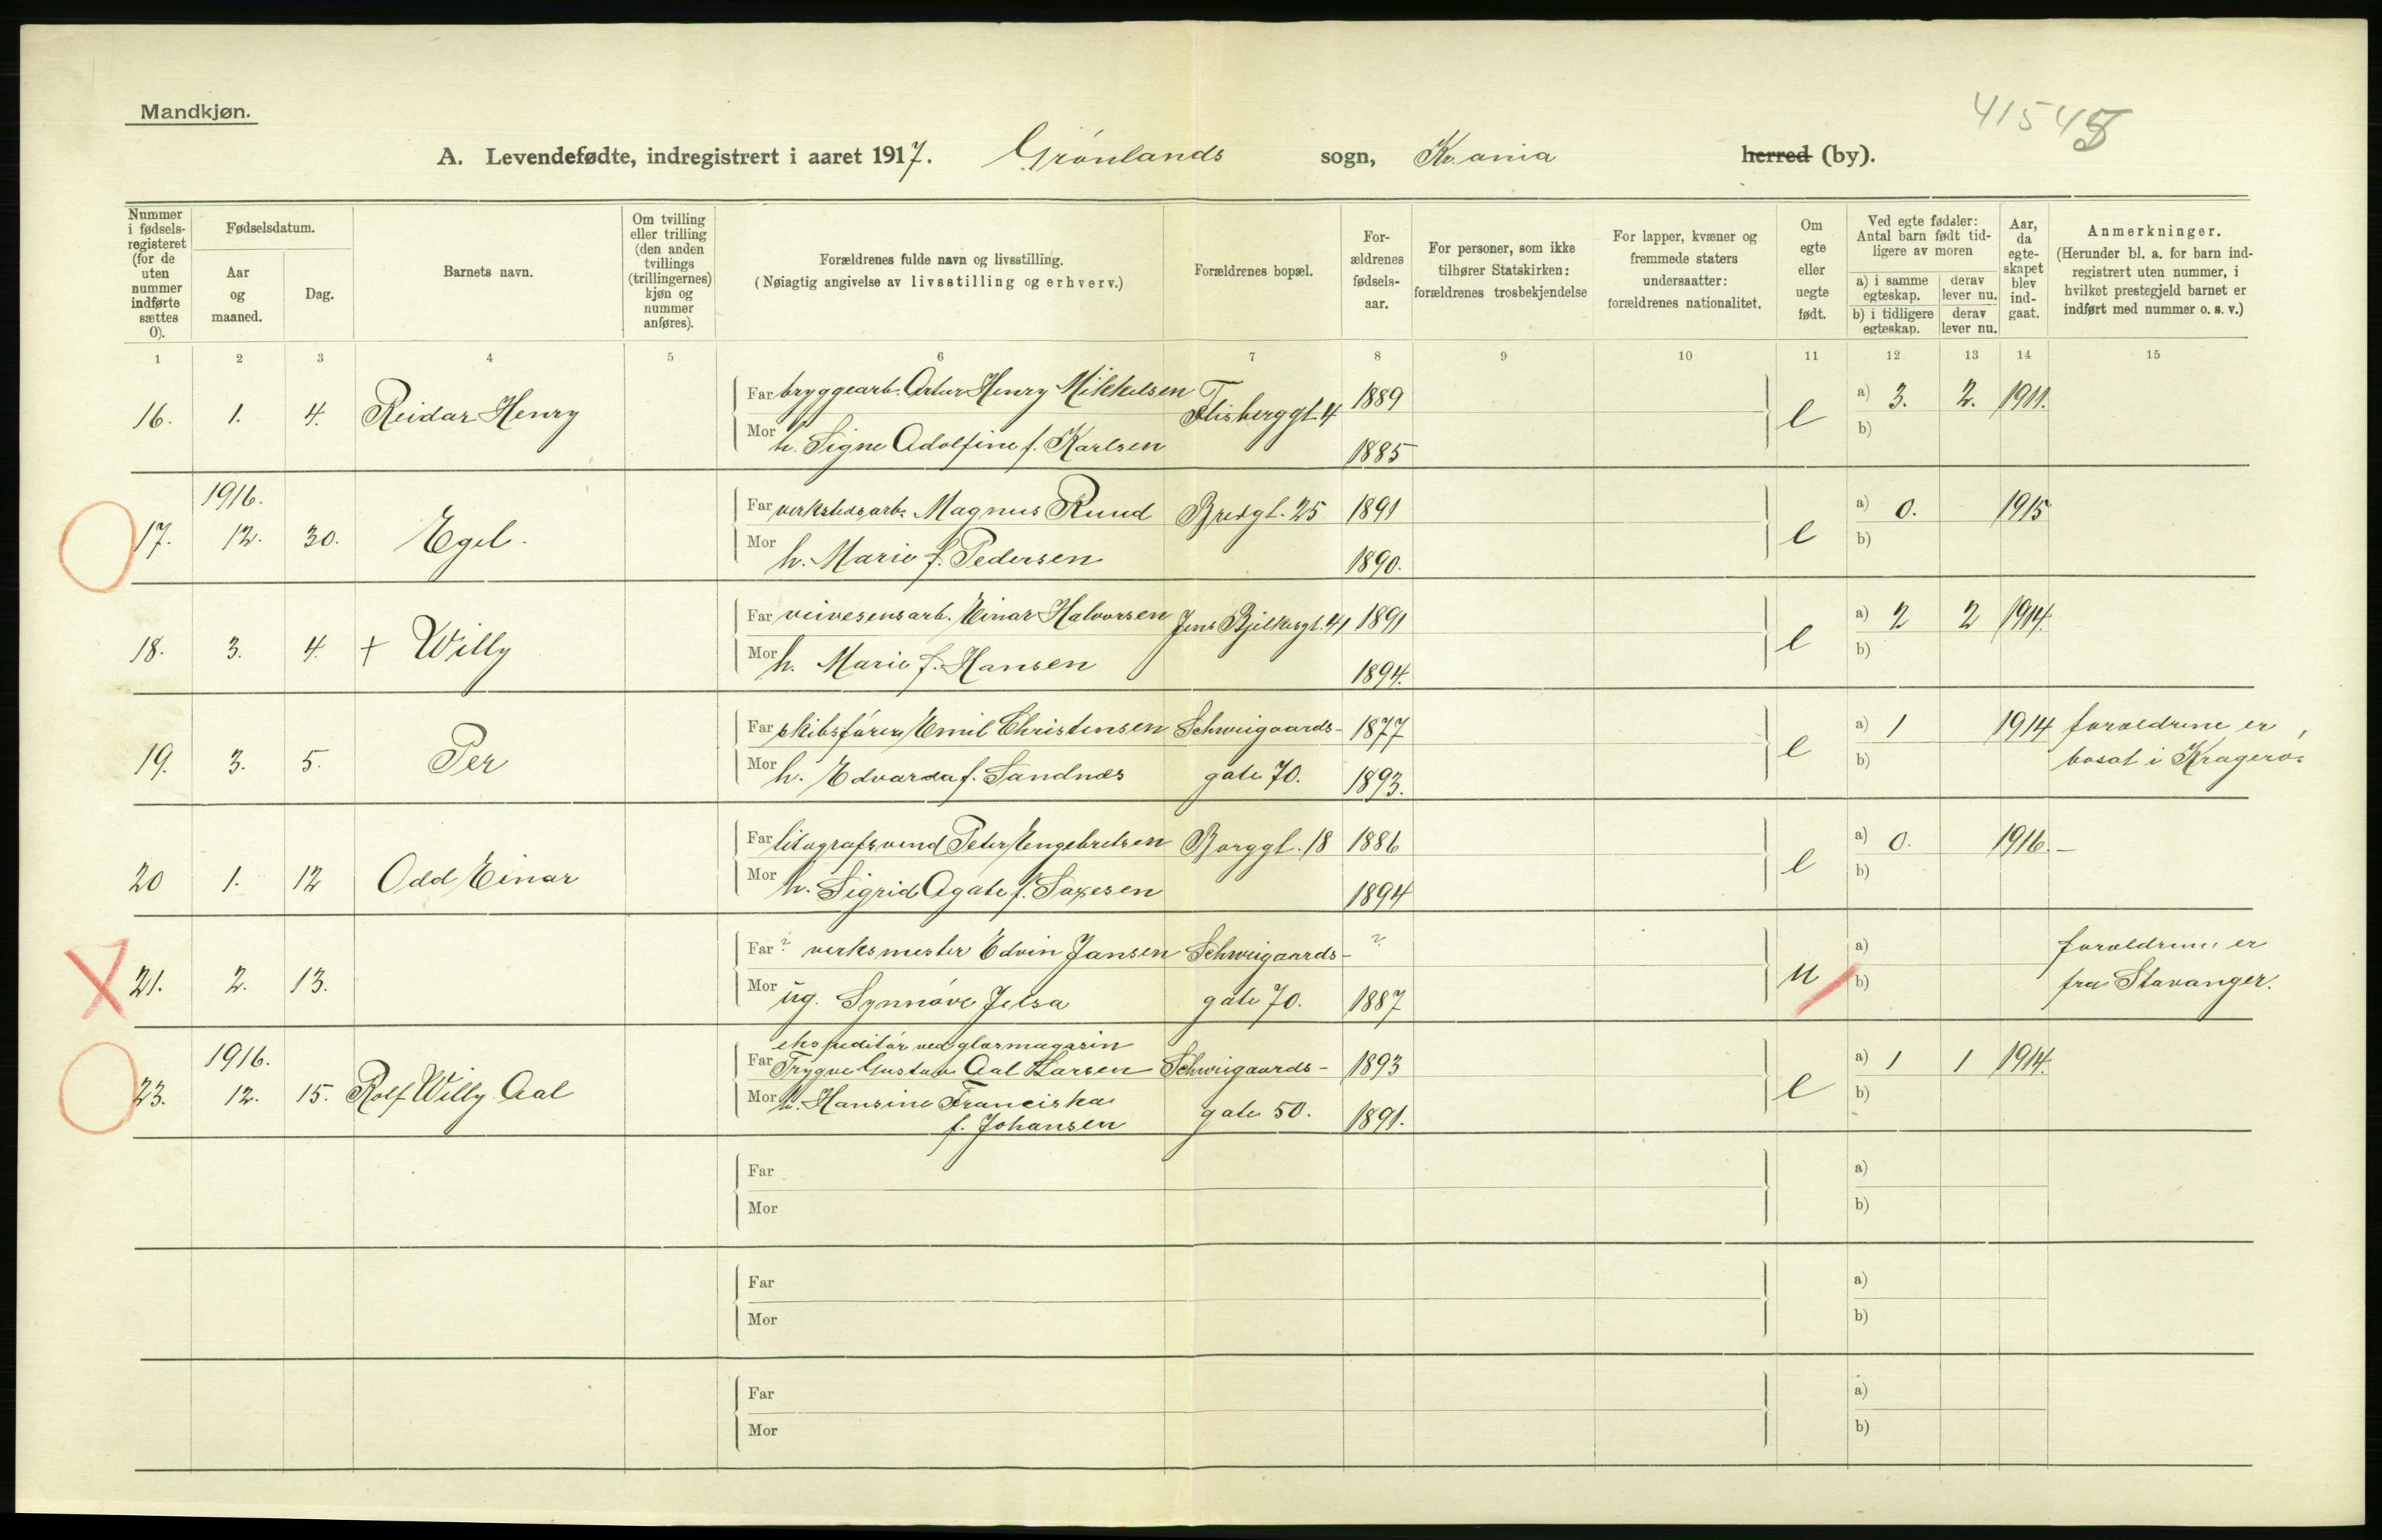 Mandkjøn.
41545
A. Levendefødte, indregistrert i aaret 1917. Grønlands sogn, Kr.ania herred (by).
Nummer i fødselsregisteret (for de uten nummer indførte sættes 0).
Fødselsdatum.
Aar og maaned.
Dag.
Barnets navn.
Om tvilling eller trilling (den anden tvillings (trillingernes) kjøn og nummer anføres).
Forældrenes fulde navn og livsstilling.
(Nøiagtig angivelse av livsstilling og erhverv.)
Forældrenes bopæl.
Forældrenes fødselsaar.
For personer, som ikke tilhører Statskirken: forældrenes trosbekjendelse
For lapper, kvæner og fremmede staters undersaatter: forældrenes nationalitet.
Om egte eller uegte født.
Ved egte fødsler: Antal barn født tidligere av moren
a) i samme egteskap.
derav lever nu.
b) i tidligere egteskap.
derav lever nu.
Aar, da egteskapet blev indgaat.
Anmerkninger.
(Herunder bl. a. for barn indregistrert uten nummer, i hvilket prestegjeld barnet er indført med nummer o. s. v.)
1 2 3 4 5 6 7 8 9 10 11 12 13 14 15
16. 1. 4. Reidar Henry
Far bryggearb. Artur Henry Mikkelsen Flisberggt. 4 1889
Mor h. Signe Adolfine f. Karlsen 1885
e a) 3. 2. 1911.
b)
1916.
17. 12. 30. Egil.
Far verkstedsarb. Magnus Ruud Bredgt. 25 1891
Mor h. Marie f. Pedersen 1890.
e a) 0. 1915
b)
18. 3. 4. + Willy
Far veivesensarb. Einar Halvorsen Jens Bjelkesgt. 41 1891
Mor h. Marie f. Hansen 1894.
e a) 2 2 1914.
b)
19. 3. 5. Per
Far skibsfører Emil Christensen Schweigaards- 1877
Mor h. Edvarda f. Sandnæs gate 70. 1893.
e a) 1 1914 forældrene er
b) bosat i Kragerø.
20 1. 12 Odd Einar
Far litografsvend Peter Engebretsen Borggt. 18 1886
Mor h. Sigrid Agate f. Saxesen 1894
e a) 0. 1916. –
b)
21. 2. 13.
Far ? verksmester Edvin Jansen Schweigaards- ?
Mor ug. Synnøve Jelsa gate 70. 1887
u a) forældrene er
b) fra Stavanger.
1916.
23. 12. 15. Rolf Willy Aal
ekspeditør ved glasmagasin
Far Trygve Gustav Aal Larsen Schweigaards- 1893
Mor h. Hansine Franciska gate 50. 1891.
f. Johansen
e a) 1 1 1914.
b)
Far a)
Mor b)
Far a)
Mor b)
Far a)
Mor b)